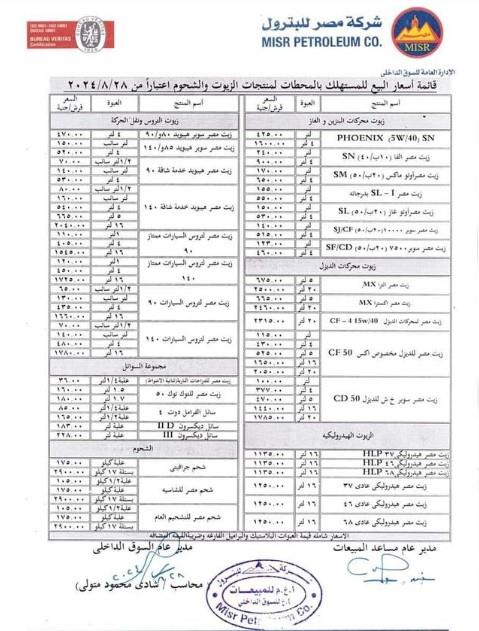 شركة مصر للبترول
MISR PETROLEUM CO.
MISR
BUREAU VERITAS
Certification
الإدارة العامة للسوق الداخلى
قائمة أسعار البيع للمستهلك بالمحطات لمنتجات الزيوت والشحوم اعتباراً من ٢٠٢٤/٨/٢٨
اسم المنتج العبوة السعر قرش/جنية
زيوت محركات البنزين و الغاز
PHOENIX (5W/40) SN لتر ٤٢٥.٠٠
٤ لتر ١٦٠٠.٠٠
زيت مصر الفا (١٠ب/٤٠) SN لتر ٢٤٠.٠٠
٤ لتر ٩٠٠.٠٠
زيت مصراوتو ماكس (٢٠ب/٥٠) SM لتر ١٧٠.٠٠
٤ لتر ٦٥٠.٠٠
زيت مصر SL – I بدرجاته لتر ١٥٥.٠٠
٤ لتر ٥٥٠.٠٠
زيت مصراوتو غاز (٢٠ب/٥٠) SL لتر ١٥٠.٠٠
٤ لتر ٥٣٠.٠٠
زيت مصر سوبر ١٠٠٠٠ (٢٠ب/٥٠) SJ/CF لتر ١٤٠.٠٠
٤ لتر ٥١٥.٠٠
زيت مصر سوبر ٧٥٠٠ (٢٠ب/٥٠) SF/CD لتر ١٢٣.٠٠
٤ لتر ٤٦٠.٠٠
زيوت محركات الديزل
زيت مصر الترا MX ٥ لتر ٦٧٥.٠٠
٢٠ لتر ٢٥٠٠.٠٠
زيت مصر اكسترا MX ٥ لتر ٦٦٥.٠٠
٢٠ لتر ٢٤٦٠.٠٠
زيت مصر لمحركات الديزل CF – 4 15w/40 ٢٠ لتر ٢٣١٥.٠٠
زيت مصر للديزل مخصوص اكس CF 50 لتر ١١٥.٠٠
٤ لتر ٤٣٠.٠٠
٥ لتر ٥٢٥.٠٠
١٦ لتر ١٦٥٠.٠٠
٢٠ لتر ٢٠٥٠.٠٠
زيت مصر سوبر خ ش للديزل CD 50 لتر ١٠٠.٠٠
٤ لتر ٣٧٧.٠٠
٥ لتر ٤٧٠.٠٠
١٦ لتر ١٤٤٠.٠٠
٢٠ لتر ١٧٦٥.٠٠
الزيوت الهيدروليكيه
زيت مصر هيدروليكى ٣٧ HLP ١٦ لتر ١١٣٥.٠٠
زيت مصر هيدروليكى ٤٦ HLP ١٦ لتر ١١٣٥.٠٠
زيت مصر هيدروليكى ٦٨ HLP ١٦ لتر ١١٣٥.٠٠
زيت مصر هيدروليكى عادى ٣٧ ١٦ لتر ١٢٥٠.٠٠
زيت مصر هيدروليكى عادى ٤٦ ١٦ لتر ١٢٥٠.٠٠
زيت مصر هيدروليكى عادى ٦٨ ١٦ لتر ١٢٥٠.٠٠
اسم المنتج العبوة السعر قرش/جنية
زيوت التروس ونقل الحركة
زيت مصر سوبر هيبويد ٨٠و/٩٠ ٤ لتر ٤٧٠.٠٠
زيت مصر سوبر هيبويد ٨٥و/١٤٠ لتر سائب ١٥٠.٠٠
٤ لتر ٥٢٠.٠٠
زيت مصر هيبويد خدمة شاقة ٩٠ ١/٢ لتر سائب ٧٠.٠٠
لتر سائب ١٤٠.٠٠
٤ لتر ٥٣٠.٠٠
زيت مصر هيبويد خدمة شاقة ١٤٠ ١/٢ لتر سائب ٨٠.٠٠
لتر سائب ١٦٠.٠٠
٤ لتر ٥٤٠.٠٠
٥ لتر ٦٦٥.٠٠
١٦ لتر ٢٠٤٠.٠٠
زيت مصر لتروس السيارات ممتاز ٩٠ ١ لتر ١١٠.٠٠
٤ لتر ٤٠٥.٠٠
١٦ لتر ١٥٤٥.٠٠
زيت مصر لتروس السيارات ممتاز ١٤٠ ١ لتر ١٢٠.٠٠
٤ لتر ٤٥٠.٠٠
١٦ لتر ١٧٢٥.٠٠
زيت مصر لتروس السيارات ٩٠ ١/٢ لتر سائب ٦٥.٠٠
لتر سائب ١٣٠.٠٠
٤ لتر ٤٣٥.٠٠
١٦ لتر ١٦٦٠.٠٠
زيت مصر لتروس السيارات ١٤٠ ١/٢ لتر سائب ٧٠.٠٠
لتر سائب ١٤٠.٠٠
٤ لتر ٤٨٠.٠٠
١٦ لتر ١٧٨٠.٠٠
مجموعة السوائل
علبة ١/٤ لتر ٣٦.٠٠
زيت مصر للتوك توك ٥٠ ١.٥ لتر ١٦٠.٠٠
١.٧ لتر ١٨٠.٠٠
سائل الفرامل دوت ٤ علبة ١/٢ لتر ٨٥.٠٠
علبة لتر ١٦٥.٠٠
سائل ديكسرون II D علبة لتر ١٨٣.٠٠
سائل ديكسرون III علبة لتر ٢٢٨.٠٠
الشحوم
شحم جرافيتى علبة كيلو ١٧٥.٠٠
بستلة ١٧ كيلو ٢٩٠٠.٠٠
شحم مصر للشاسيه علبة ١/٢ كيلو ١٠٥.٠٠
علبة كيلو ١٧٥.٠٠
بستلة ١٧ كيلو ٢٩٠٠.٠٠
شحم مصر للتشحيم العام علبة ١/٢ كيلو ١٠٥.٠٠
علبة كيلو ١٧٥.٠٠
بستلة ١٧ كيلو ٢٩٠٠.٠٠
الاسعار شاملة قيمة العبوات البلاستيك والبراميل الفارغه وضريبة القيمة المضافه
مدير عام مساعد المبيعات
مدير عام السوق الداخلى
محاسب / شادى محمود متولى
أ.ع.م للمبيعات
أ.ع للسوق الداخلى
Misr Petroleum Co.